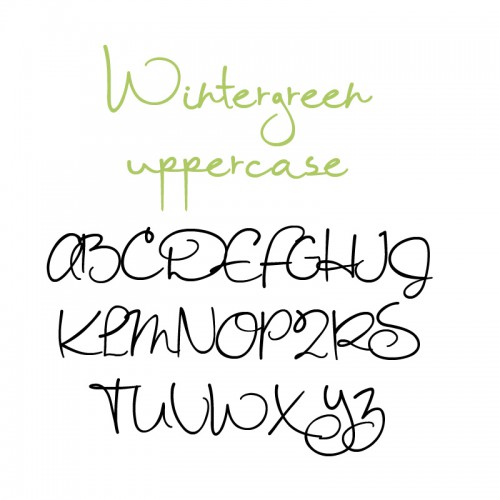 Wintergreen
uppercase
ABCDEFGHIJ
KLMNOPQRS
TUVWXYZ